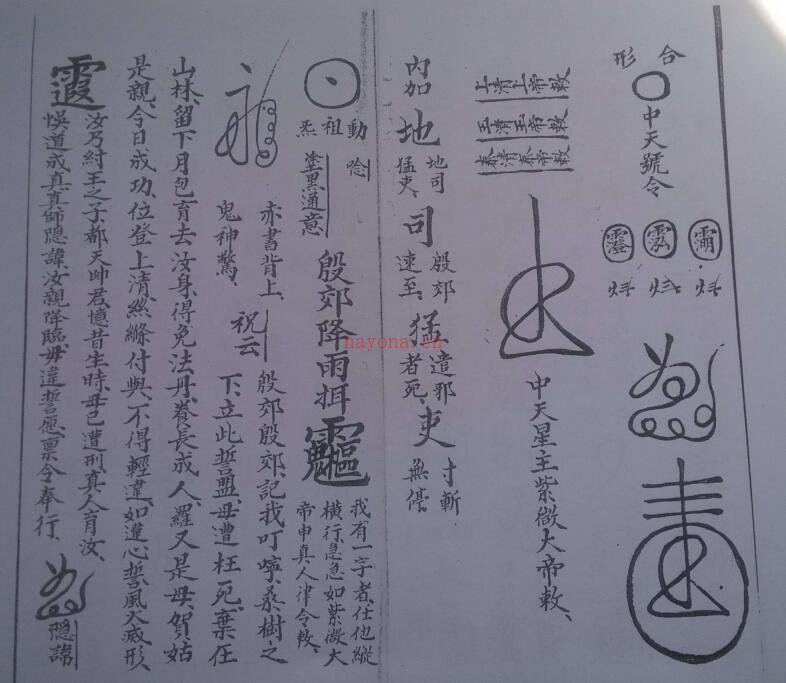 合形
中天號令
上清上帝敕
玉清玉帝敕
泰清泰帝敕
中天星主紫微大帝敕、
內加
地 地司猛吏、
司 殷郊速至、
猛 遣邪者死、
吏 寸斬無停、
動祖炁
唸
塗黑通意
殷郊降雨揖
我有一字者、任他縱
橫行、急急如紫微大
帝申真人律令敕、
赤書背上、
鬼神驚、
祝云
殷郊殷郊、記我叮嚀、桑樹之
下、立此誓盟、母遭枉死、棄在
山林、留下月包、育去汝身、得免法丹、養長成人、羅又是母、賀姑
是親、今日成功、位登上清、絲縧付與、不得輕違、如違心誓、風火滅形、
汝乃紂王之子、都天帥君、憶昔生時、母已遭刑、真人育汝、
悞道成真、真師隱諱、汝親降臨、毋違誓愿、禀令奉行、
隱諱
nayona.cn